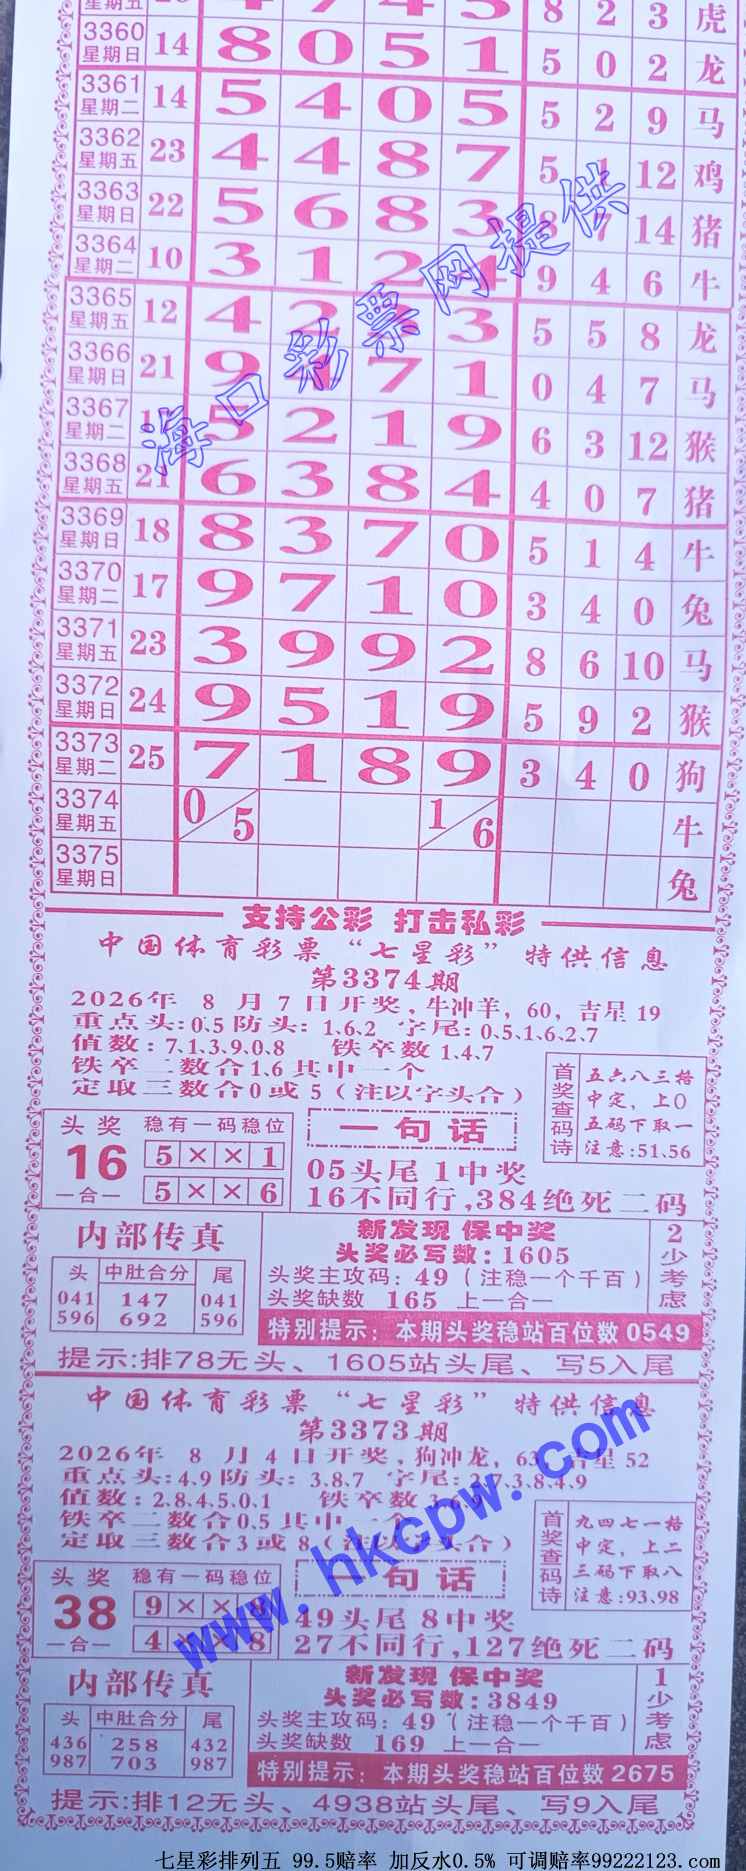 星期五 8 2 3 虎
3360 星期日 14 8 0 5 1 5 0 2 龙
3361 星期二 14 5 4 0 5 5 2 9 马
3362 星期五 23 4 4 8 7 5 1 12 鸡
3363 星期日 22 5 6 8 3 8 7 14 猪
3364 星期二 10 3 1 2 4 9 4 6 牛
3365 星期五 12 4 2 3 5 5 8 龙
3366 星期日 21 9 7 1 0 4 7 马
3367 星期二 5 2 1 9 6 3 12 猴
3368 星期五 21 6 3 8 4 4 0 7 猪
3369 星期日 18 8 3 7 0 5 1 4 牛
3370 星期二 17 9 7 1 0 3 4 0 兔
3371 星期五 23 3 9 9 2 8 6 10 马
3372 星期日 24 9 5 1 9 5 9 2 猴
3373 星期二 25 7 1 8 9 3 4 0 狗
3374 星期五 0/5 1/6 牛
3375 星期日 兔
海口彩票网提供
支持公彩 打击私彩
中国体育彩票“七星彩”特供信息
第3374期
2026年 8 月 7 日开奖,牛冲羊,60,吉星19
重点头:0.5防头:1.6.2 字尾:0.5.1.6.2.7
值数:7.1.3.9.0.8 铁卒数1.4.7
铁卒二数合1.6其中一个
定取三数合0或5(注以字头合)
首奖查码诗
五六八三格
中定,上0
五码下取一
注意:51.56
头奖 稳有一码稳位
16 5××1
一合一 5××6
一句话
05头尾1中奖
16不同行,384绝死二码
内部传真
头 中肚合分 尾
041 147 041
596 692 596
新发现 保中奖
头奖必写数:1605
头奖主攻码:49(注稳一个千百)
头奖缺数 165 上一合一
2少考虑
特别提示:本期头奖稳站百位数0549
提示:排78无头、1605站头尾、写5入尾
中国体育彩票“七星彩”特供信息
第3373期
2026年 8 月 4 日开奖,狗冲龙,63,吉星52
重点头:4.9防头:3.8.7 字尾:2.7.3.8.4.9
值数:2.8.4.5.0.1 铁卒数3.6.9
铁卒二数合0.5其中一个
定取三数合3或8(注以字头合)
首奖查码诗
九四七一格
中定,上二
三码下取八
注意:93.98
头奖 稳有一码稳位
38 9××8
一合一 4××8
一句话
49头尾8中奖
27不同行,127绝死二码
www.hkcpw.com
内部传真
头 中肚合分 尾
436 258 432
987 703 987
新发现 保中奖
头奖必写数:3849
头奖主攻码:49(注稳一个千百)
头奖缺数 169 上一合一
1少考虑
特别提示:本期头奖稳站百位数2675
提示:排12无头、4938站头尾、写9入尾
七星彩排列五 99.5赔率 加反水0.5% 可调赔率99222123.com